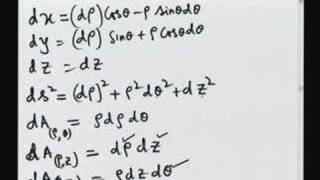 dx = (dρ) Cosθ - ρ sinθdθ
dy = (dρ) sinθ + ρ Cosθdθ
dz = dz
ds² = (dρ)² + ρ²dθ² + dz²
dA(ρ,θ) = ρdρdθ
dA(ρ,z) = dρ dz
= ρdz dθ